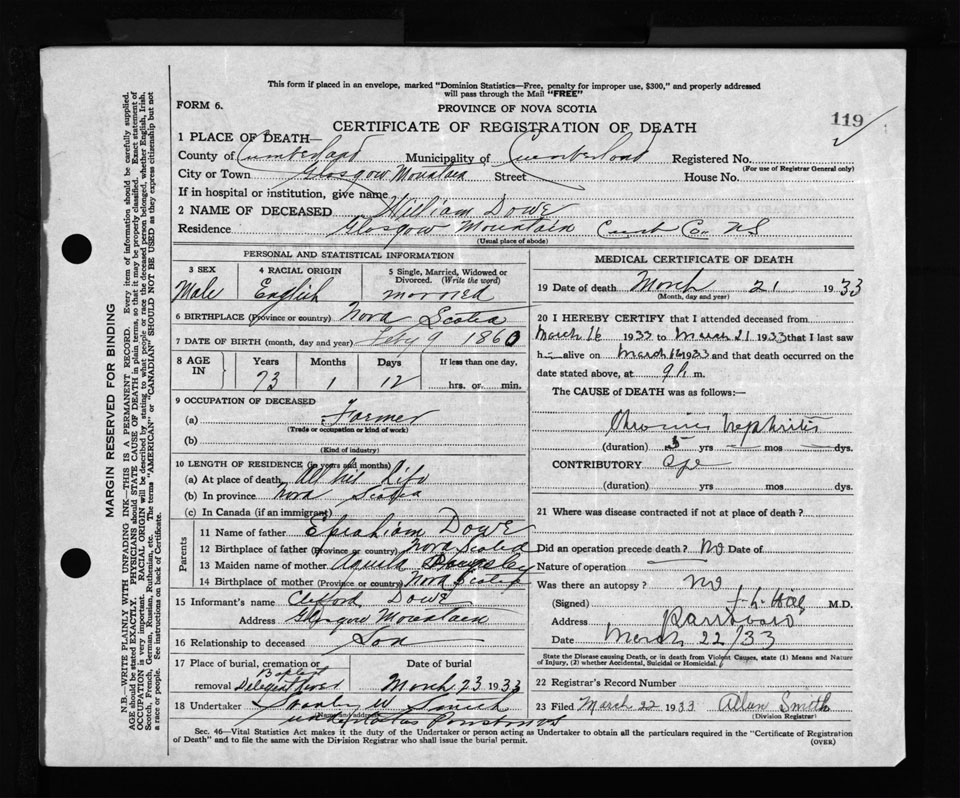 This form if placed in an envelope, marked "Dominion Statistics—Free, penalty for improper use, $300," and properly addressed
will pass through the Mail "FREE"
FORM 6.
PROVINCE OF NOVA SCOTIA
119
CERTIFICATE OF REGISTRATION OF DEATH
1 PLACE OF DEATH—
County of Cumberland Municipality of Cumberland Registered No.
(For use of Registrar General only)
City or Town Glasgow Mountain Street House No.
If in hospital or institution, give name
2 NAME OF DECEASED William Dowe
Residence Glasgow Mountain Cumb Co., NS
(Usual place of abode)
PERSONAL AND STATISTICAL INFORMATION
3 SEX 4 RACIAL ORIGIN 5 Single, Married, Widowed or Divorced. (Write the word)
Male English married
6 BIRTHPLACE (Province or country) Nova Scotia
7 DATE OF BIRTH (month, day and year) Feby 9 1860
8 AGE IN Years Months Days If less than one day,
73 1 12 hrs. or min.
9 OCCUPATION OF DECEASED
(a) Farmer
(Trade or occupation or kind of work)
(b)
(Kind of industry)
10 LENGTH OF RESIDENCE (in years and months)
(a) At place of death All his Life
(b) In province Nova Scotia
(c) In Canada (if an immigrant)
Parents
11 Name of father Ephraim Dowe
12 Birthplace of father (Province or country) Nova Scotia
13 Maiden name of mother
14 Birthplace of mother (Province or country) Nova Scotia
15 Informant's name Clifford Dowe
Address Glasgow Mountain
16 Relationship to deceased Son
17 Place of burial, cremation or removal Date of burial
March 23 1933
18 Undertaker Stanley W Smith
(Name and address)
MEDICAL CERTIFICATE OF DEATH
19 Date of death March 21 1933
(Month, day and year)
20 I HEREBY CERTIFY that I attended deceased from
March 16 1933 to March 21 1933 that I last saw
h alive on March 16 1933 and that death occurred on the
date stated above, at 9 m.
The CAUSE OF DEATH was as follows:
Chronic nephritis
(duration) 5 yrs mos dys.
CONTRIBUTORY age
(duration) yrs mos dys.
21 Where was disease contracted if not at place of death?
Did an operation precede death? No Date of
Nature of operation
Was there an autopsy? no
(Signed) M.D.
Address Parrsboro
Date March 22/33
State the Disease causing Death, or in death from Violent Causes, state (1) Means and Nature
of Injury, (2) whether Accidental, Suicidal or Homicidal.
22 Registrar's Record Number
23 Filed March 22 1933 Allen Smith
(Division Registrar)
Sec. 46—Vital Statistics Act makes it the duty of the Undertaker or person acting as Undertaker to obtain all the particulars required in the "Certificate of Registration
of Death" and to file the same with the Division Registrar who shall issue the burial permit.
(OVER)
MARGIN RESERVED FOR BINDING
N.B.—WRITE PLAINLY WITH UNFADING INK—THIS IS A PERMANENT RECORD. Every item of information should be carefully supplied.
AGE should be stated EXACTLY. PHYSICIANS should STATE CAUSE OF DEATH in plain terms, so that it may be properly classified. Exact statement of
OCCUPATION is very important. RACIAL ORIGIN will be described by stating to what people or race the deceased person belonged, whether English, Irish,
Scotch, French, German, Russian, Ruthenian, etc. The terms "AMERICAN" or "CANADIAN" SHOULD NOT BE USED as they express citizenship but not
a race or people. See instructions on back of Certificate.